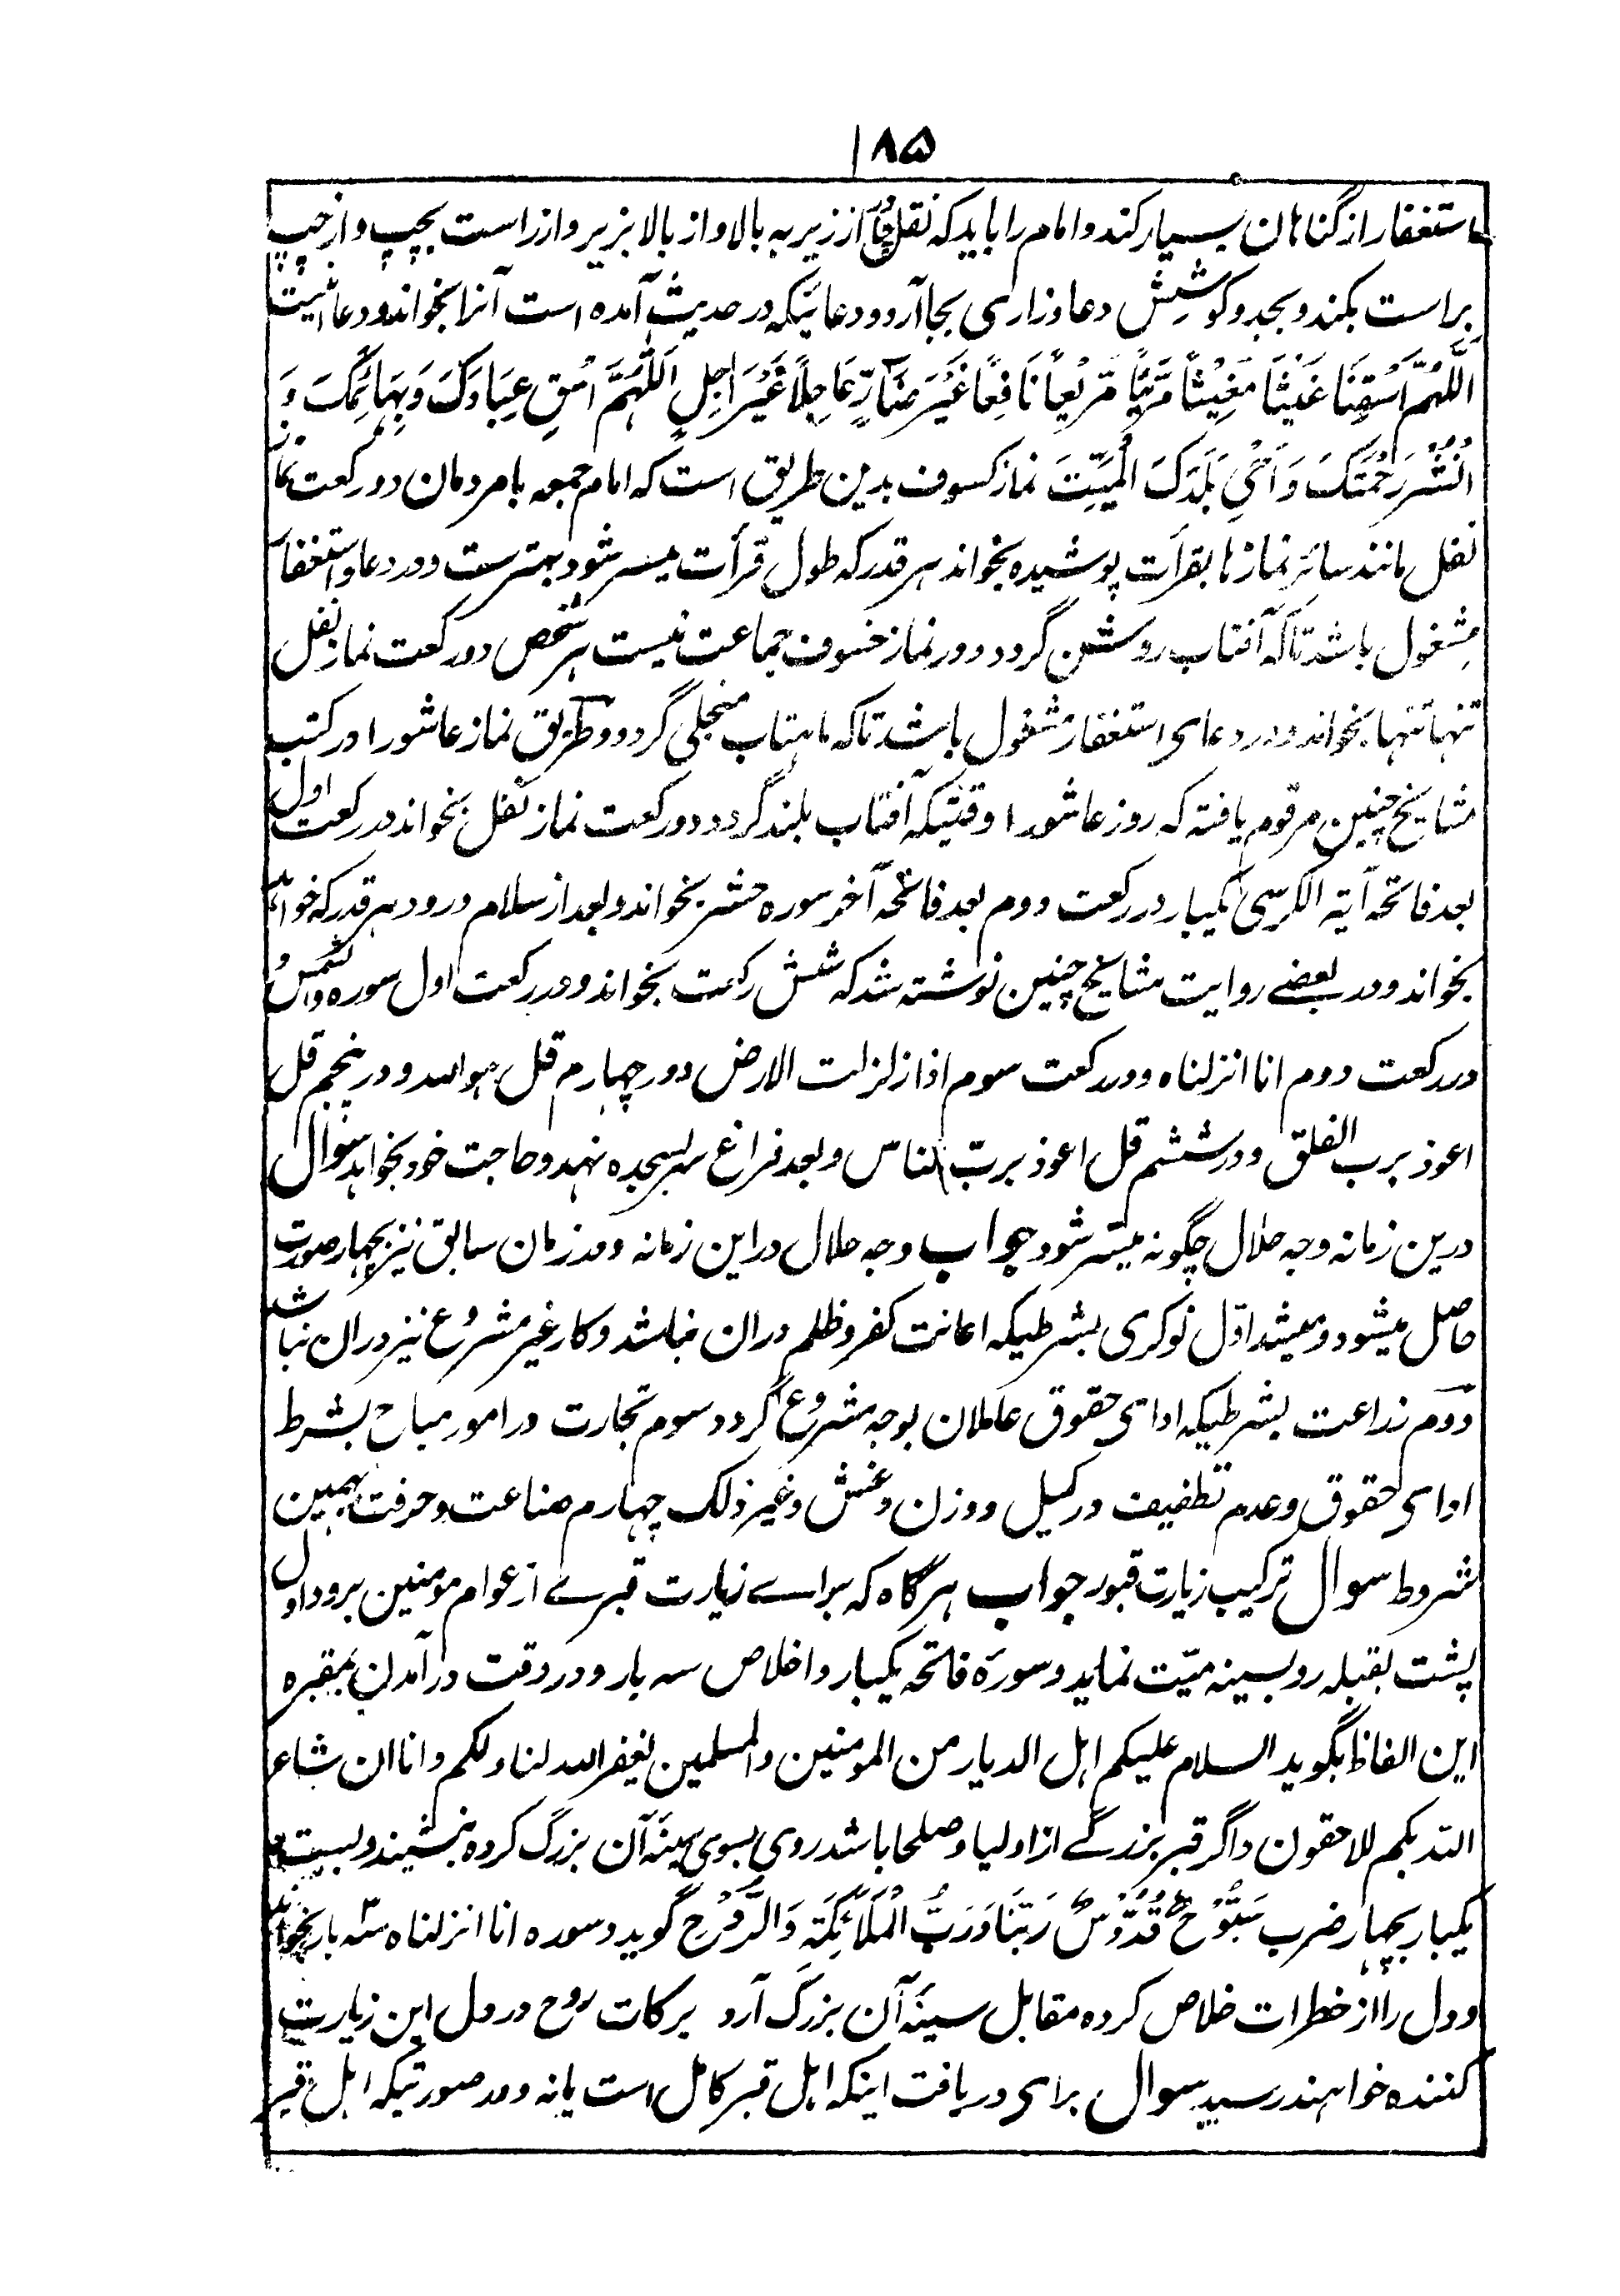 ۱۸۵
استغفار از گناهان بسیار کند و امام را باید که نقل چادر از زیر به بالا و از بالا بزیر و از راست بچپ و از چپ
براست بکند و بجد و کوشش دعا و زاری بجا آرد و دعائیکه در حدیث آمده است آنرا بخواند و دعا اینست
اَللّٰهُمَّ اسْقِنَا غَيْثًا مُّغِيْثًا مَّرِيًّا مَّرِيْعًا نَافِعًا غَيْرَ ضَآرٍّ عَاجِلًا غَيْرَ اٰجِلٍ اَللّٰهُمَّ اسْقِ عِبَادَكَ وَبَهَائِمَكَ وَ
انْشُرْ رَحْمَتَكَ وَ اَحْيِ بَلَدَكَ الْمَيِّتَ نماز کسوف بدین طریق است که امام جمعه با مردمان دو رکعت نماز
نفل مانند سائر نمازها بقرأت پوشیده بخواند هر قدر که طول قرأت میسر شود بهترست و در دعا و استغفار
مشغول باشد تا که آفتاب روشن گردد و در نماز خسوف جماعت نیست هر شخص دو رکعت نماز نفل
تنها تنها بخواند و در دعای استغفار مشغول باشد تا که ماهتاب منجلی گردد و طریق نماز عاشورا در کتب
مشایخ چنین مرقوم یافته که روز عاشورا وقتیکه آفتاب بلند گردد دو رکعت نماز نفل بخواند در رکعت اول
بعد فاتحه آیة الکرسی یکبار در رکعت دوم بعد فاتحه آخر سوره حشر بخواند و بعد از سلام درود هر قدر که خواند
بخواند و در بعضے روایت مشایخ چنین نوشته شد که شش رکعت بخواند و در رکعت اول سوره والشمس
در رکعت دوم انا انزلناه و در رکعت سوم اذا زلزلت الارض و در چهارم قل هو الله و در پنجم قل
اعوذ برب الفلق و در ششم قل اعوذ برب الناس و بعد فراغ سر بسجده نهد و حاجت خود بخواهد سوال
درین زمانه وجه حلال چگونه میسر شود جواب وجه حلال دراین زمانه و در زمان سابق نیز بچهار صورت
حاصل میشود و میشد اول نوکری بشرطیکه اعانت کفر و ظلم دران نباشد و کار غیر مشروع نیز دران نباشد
دوم زراعت بشرطیکه ادای حقوق عاملان بوجه مشروع گردد سوم تجارت در امور مباح بشرط
ادای حقوق و عدم تطفیف در کیل و وزن و غش و غیر ذلک چهارم صناعت و حرفت بهمین
شروط سوال ترکیب زیارت قبور جواب هر گاه که برای زیارت قبرے از عوام مومنین برود اول
پشت بقبله رو بسینه میّت نماید و سورۀ فاتحه یکبار و اخلاص سه بار و در وقت درآمدن بمقبره
این الفاظ بگوید السلام علیکم اهل الدیار من المومنین والمسلمین یغفر الله لنا ولکم وانا ان شاء
الله بکم للاحقون و اگر قبر بزرگے از اولیا و صلحا باشد روی بسوی سینۀ آن بزرگ کرده بنشیند و بیست
یکبار بچهار ضرب سُبُّوْحٌ قُدُّوْسٌ رَبُّنَا وَرَبُّ الْمَلَآئِكَةِ وَالرُّوْحِ گوید و سوره انا انزلناه سه بار بخواند
و دل را از خطرات خلاص کرده مقابل سینۀ آن بزرگ آرد برکات روح در دل این زیارت
کننده خواهند رسید سوال برای دریافت اینکه اهل قبر کامل است یا نه و در صورتیکه اهل قبر